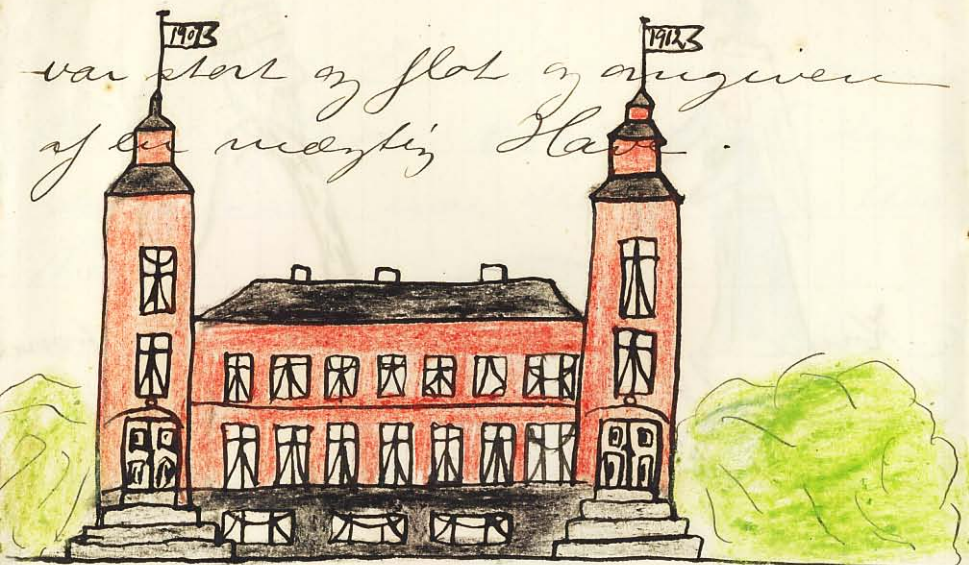 1912
var stort og flot og omgiven
af en mægtig Have.